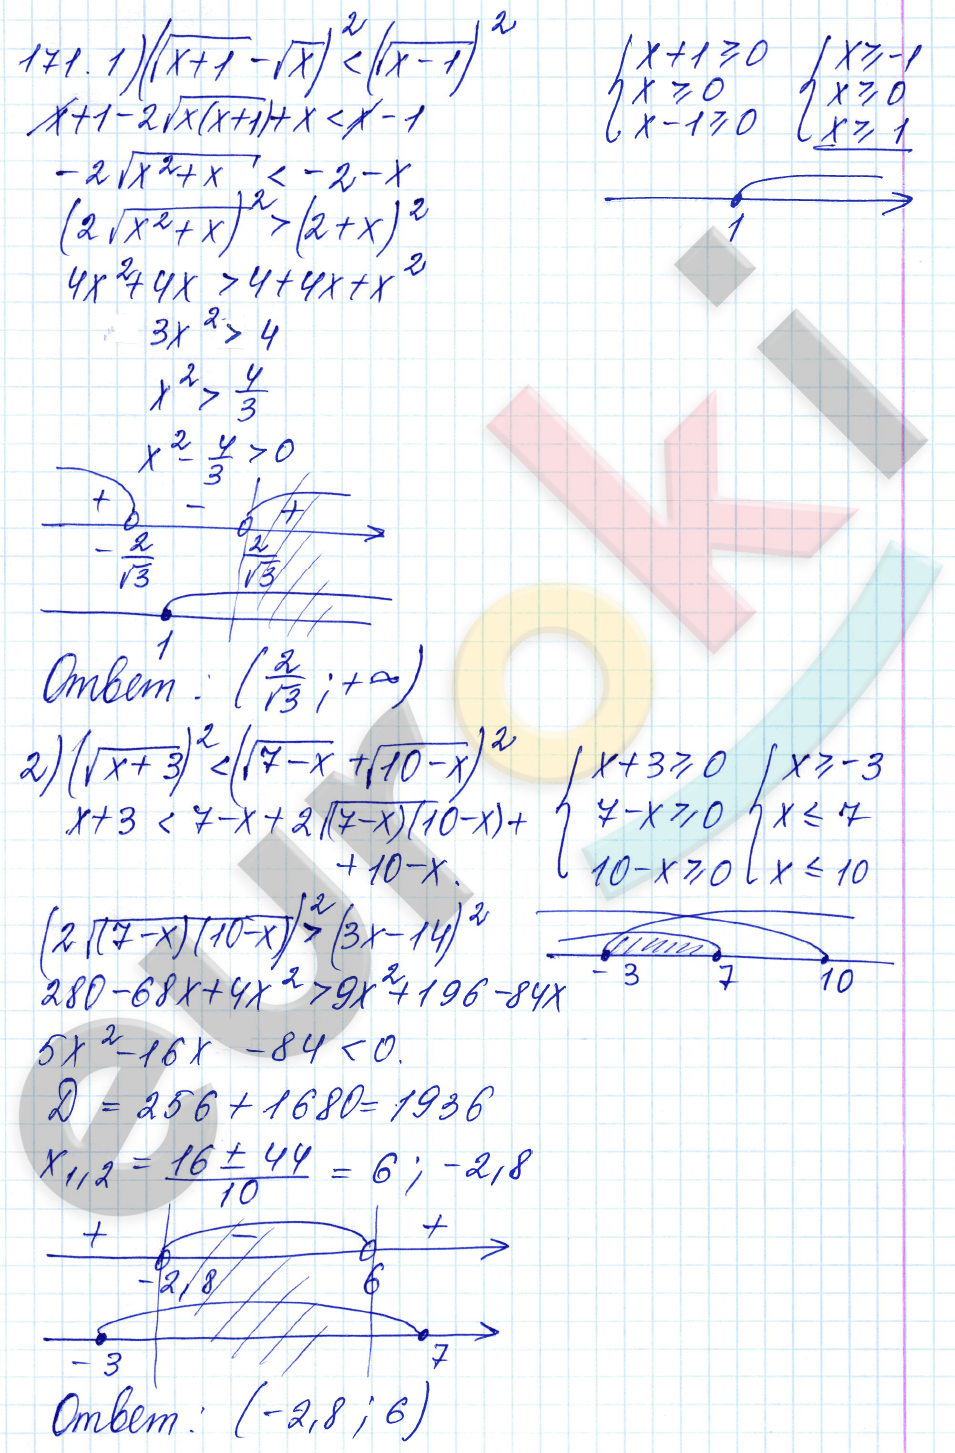 171. 1) (√(x+1) - √x)² < (√(x-1))²
{ x+1≥0 { x≥-1
x≥0 x≥0
x-1≥0 x≥1
x+1-2√(x(x+1))+x < x-1
-2√(x²+x) < -2-x
1
(2√(x²+x))² > (2+x)²
4x²+4x > 4+4x+x²
3x² > 4
x² > 4/3
x² - 4/3 > 0
+ - +
-2/√3 2/√3
1
Ответ: (2/√3; +∞)
2) (√(x+3))² < (√(7-x) + √(10-x))²
{ x+3≥0 { x≥-3
7-x≥0 x≤7
10-x≥0 x≤10
x+3 < 7-x+2√((7-x)(10-x)) +
+10-x.
(2√((7-x)(10-x)))² > (3x-14)²
-3 7 10
280-68x+4x² > 9x²+196-84x
5x²-16x -84 < 0.
D = 256+1680 = 1936
x₁,₂ = (16±44)/10 = 6; -2,8
+ - +
-2,8 6
-3 7
Ответ: (-2,8; 6)
euroki